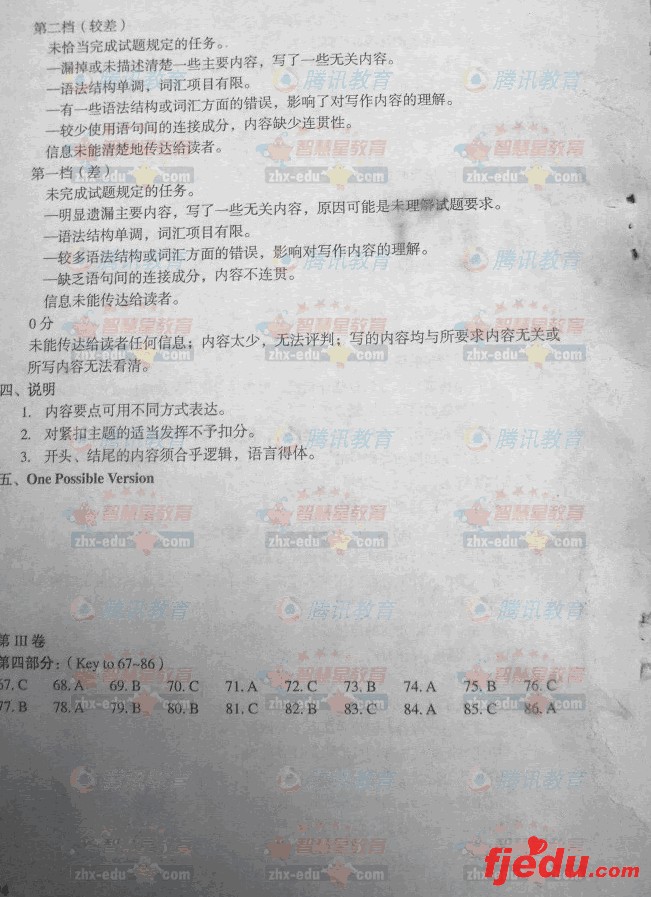 第二档（较差）
未恰当完成试题规定的任务。
—漏掉或未描述清楚一些主要内容，写了一些无关内容。
—语法结构单调，词汇项目有限。
—有一些语法结构或词汇方面的错误，影响了对写作内容的理解。
—较少使用语句间的连接成分，内容缺少连贯性。
信息未能清楚地传达给读者。
第一档（差）
未完成试题规定的任务。
—明显遗漏主要内容，写了一些无关内容，原因可能是未理解试题要求。
—语法结构单调，词汇项目有限。
—较多语法结构或词汇方面的错误，影响对写作内容的理解。
—缺乏语句间的连接成分，内容不连贯。
信息未能传达给读者。
0 分
未能传达给读者任何信息；内容太少，无法评判；写的内容均与所要求内容无关或
所写内容无法看清。
四、说明
1. 内容要点可用不同方式表达。
2. 对紧扣主题的适当发挥不予扣分。
3. 开头、结尾的内容须合乎逻辑，语言得体。
五、One Possible Version
第 III 卷
第四部分：（Key to 67~86）
67. C 68. A 69. B 70. C 71. A 72. C 73. B 74. A 75. B 76. C
77. B 78. A 79. B 80. B 81. C 82. B 83. C 84. A 85. C 86. A
智慧星教育
zhx-edu com
腾讯教育
fjedu.com